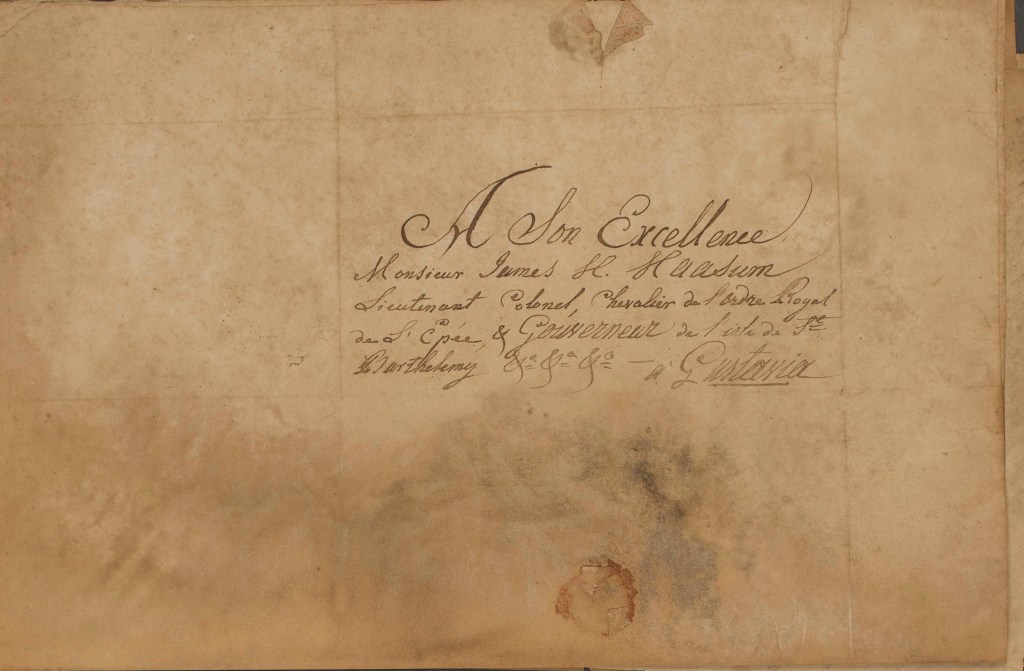 A Son Excellence
Monsieur James H. Haasum
Lieutenant Colonel, Chevalier de l'ordre Royal
de L'Epée, & Gouverneur de l'isle de St
Barthelemy &a &a &a — à Gustavia